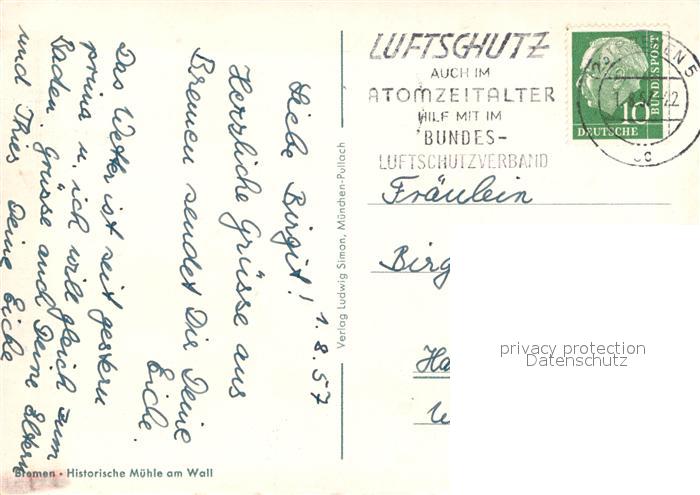 Liebe Birgit!
1.8.57
Herzliche Grüsse aus
Bremen sendet Dir Deine
Eiche.
Das Wetter ist seit gestern
prima u. ich will gleich zum
Baden. Grüsse auch Deine Eltern
und Thies Deine Eiche
Bremen · Historische Mühle am Wall
Verlag Ludwig Simon, München-Pullach
LUFTSCHUTZ
AUCH IM
ATOMZEITALTER
HILF MIT IM
BUNDES-
LUFTSCHUTZVERBAND
10
DEUTSCHE
BUNDESPOST
Fräulein
Birg
Ha
privacy protection
Datenschutz